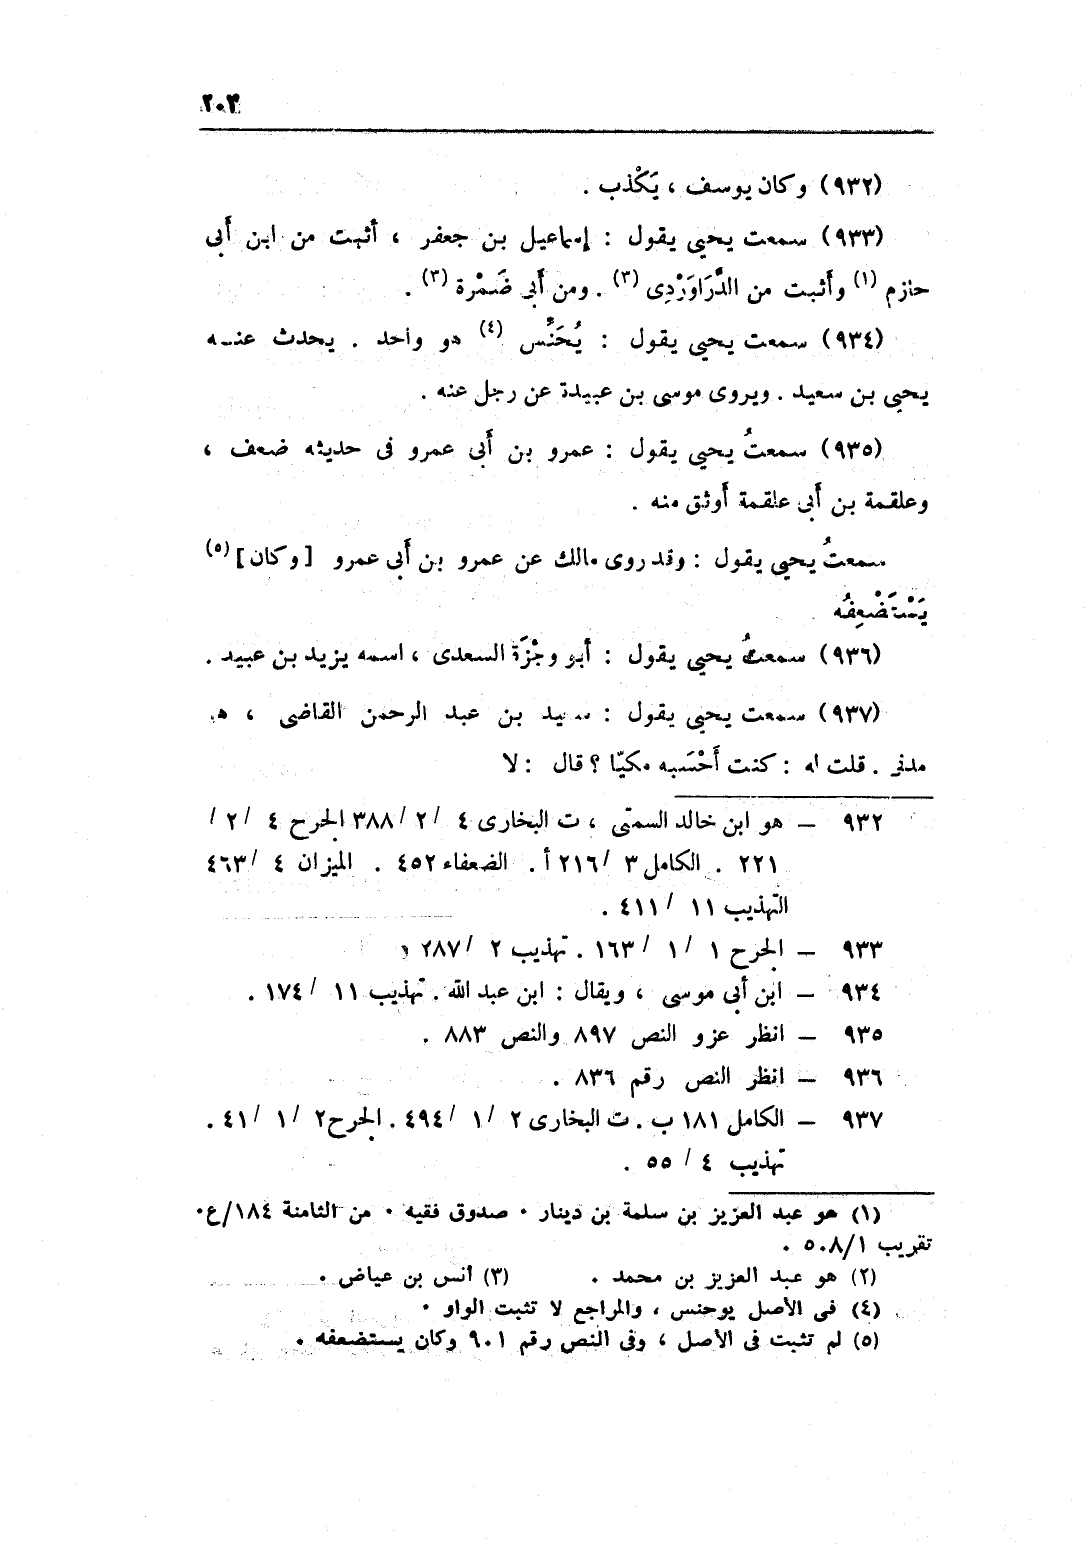 ٢٠٣
(٩٣٢) وكان يوسف ، يَكْذب .
(٩٣٣) سمعت يحيى يقول : إسماعيل بن جعفر ، أثبت من ابن أَبى
حازم (١) وأثبت من الدَّرَاوَرْدِى (٣) . ومن أَبى ضَمْرة (٣) .
(٩٣٤) سمعت يحيى يقول : يُحَنَّس (٤) هو واحد . يحدث عنه
يحيى بن سعيد . ويروى موسى بن عبيدة عن رجل عنه .
(٩٣٥) سمعتُ يحيى يقول : عمرو بن أَبى عمرو فى حديثه ضعف ،
وعلقمة بن أَبى علقمة أَوثق منه .
سمعتُ يحيى يقول : وقد روى مالك عن عمرو بن أَبى عمرو [ وكان ] (٥)
يَسْتَضْعِفُه
(٩٣٦) سمعتُ يحيى يقول : أبو وجْزَة السعدى ، اسمه يزيد بن عبيد .
(٩٣٧) سمعت يحيى يقول : سعيد بن عبد الرحمن القاضى ، هو
مدنى . قلت له : كنت أَحْسَبه مكيّا ؟ قال : لا
٩٣٢ – هو ابن خالد السمتى ، ت البخارى ٤ / ٢ / ٣٨٨ الجرح ٤ / ٢ /
٢٢١ . الكامل ٣ / ٢١٦ أ . الضعفاء ٤٥٢ . الميزان ٤ / ٤٦٣
التهذيب ١١ / ٤١١ .
٩٣٣ – الجرح ١ / ١ / ١٦٣ . تهذيب ٢ / ٢٨٧
٩٣٤ – ابن أبى موسى ، ويقال : ابن عبد الله . تهذيب ١١ / ١٧٤ .
٩٣٥ – انظر عزو النص ٨٩٧ والنص ٨٨٣ .
٩٣٦ – انظر النص رقم ٨٣٦ .
٩٣٧ – الكامل ١٨١ ب . ت البخارى ٢ / ١ / ٤٩٤ . الجرح ٢ / ١ / ٤١ .
تهذيب ٤ / ٥٥ .
(١) هو عبد العزيز بن سلمة بن دينار . صدوق فقيه . من الثامنة ١٨٤/ع.
تقريب ٥٠٨/١ .
(٢) هو عبد العزيز بن محمد . (٣) أنس بن عياض .
(٤) فى الأصل يوحنس ، والمراجع لا تثبت الواو .
(٥) لم تثبت فى الأصل ، وفى النص رقم ٩٠١ وكان يستضعفه .